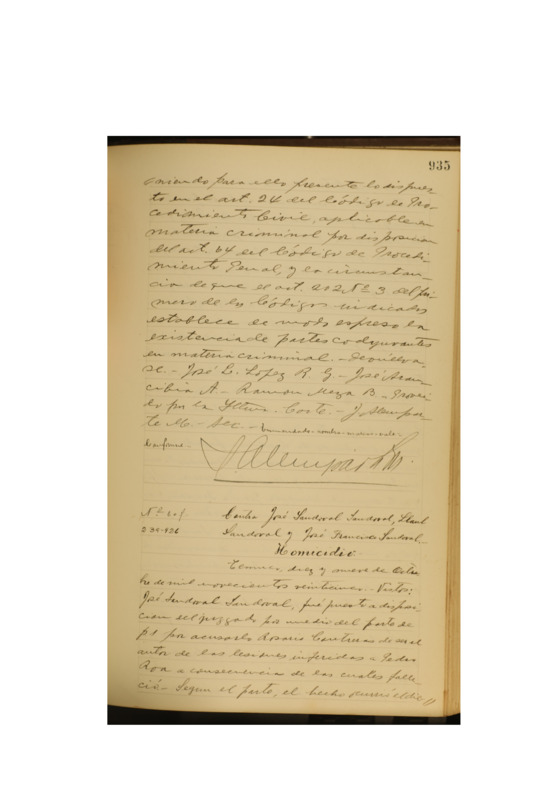 935
niendo para ello presente lo dispues-
to en el art. 24 del Código de Pro-
cedimiento Civil, aplicable en
materia criminal por disposicion
del art. 64 del Código de Procedi-
miento Penal, y la circunstan-
cia de que el art. 202 Nº 3 del pri-
mero de los Códigos indicados
establece de modo espreso la
existencia de partes coadyuvantes
en materia criminal. - Devuélva-
se. - José C. López R. G - José Aran-
cibia A. - Ramon Meza B - Provei-
do por la Iltma. Corte. - J. Allempar-
te M. - Sec. -
Conforme.
J Allemparte M.
Nº
Contra José Sandoval Sandoval,
Sandoval y José Francisco Sandoval.
Homicidio
Temuco, diez y nueve de Octu-
bre de mil novecientos veintcinco. - Vistos:
José Sandoval Sandoval, fué puesto a disposi-
cion del juzgado por medio del parte de
p 1 por acusarlo Rosario Contreras de ser el
autor de las lesiones inferidas a Pedro
Roa a consecuencia de las cuales falle-
ció. - Segun el parte, el hecho ocurrió el dia